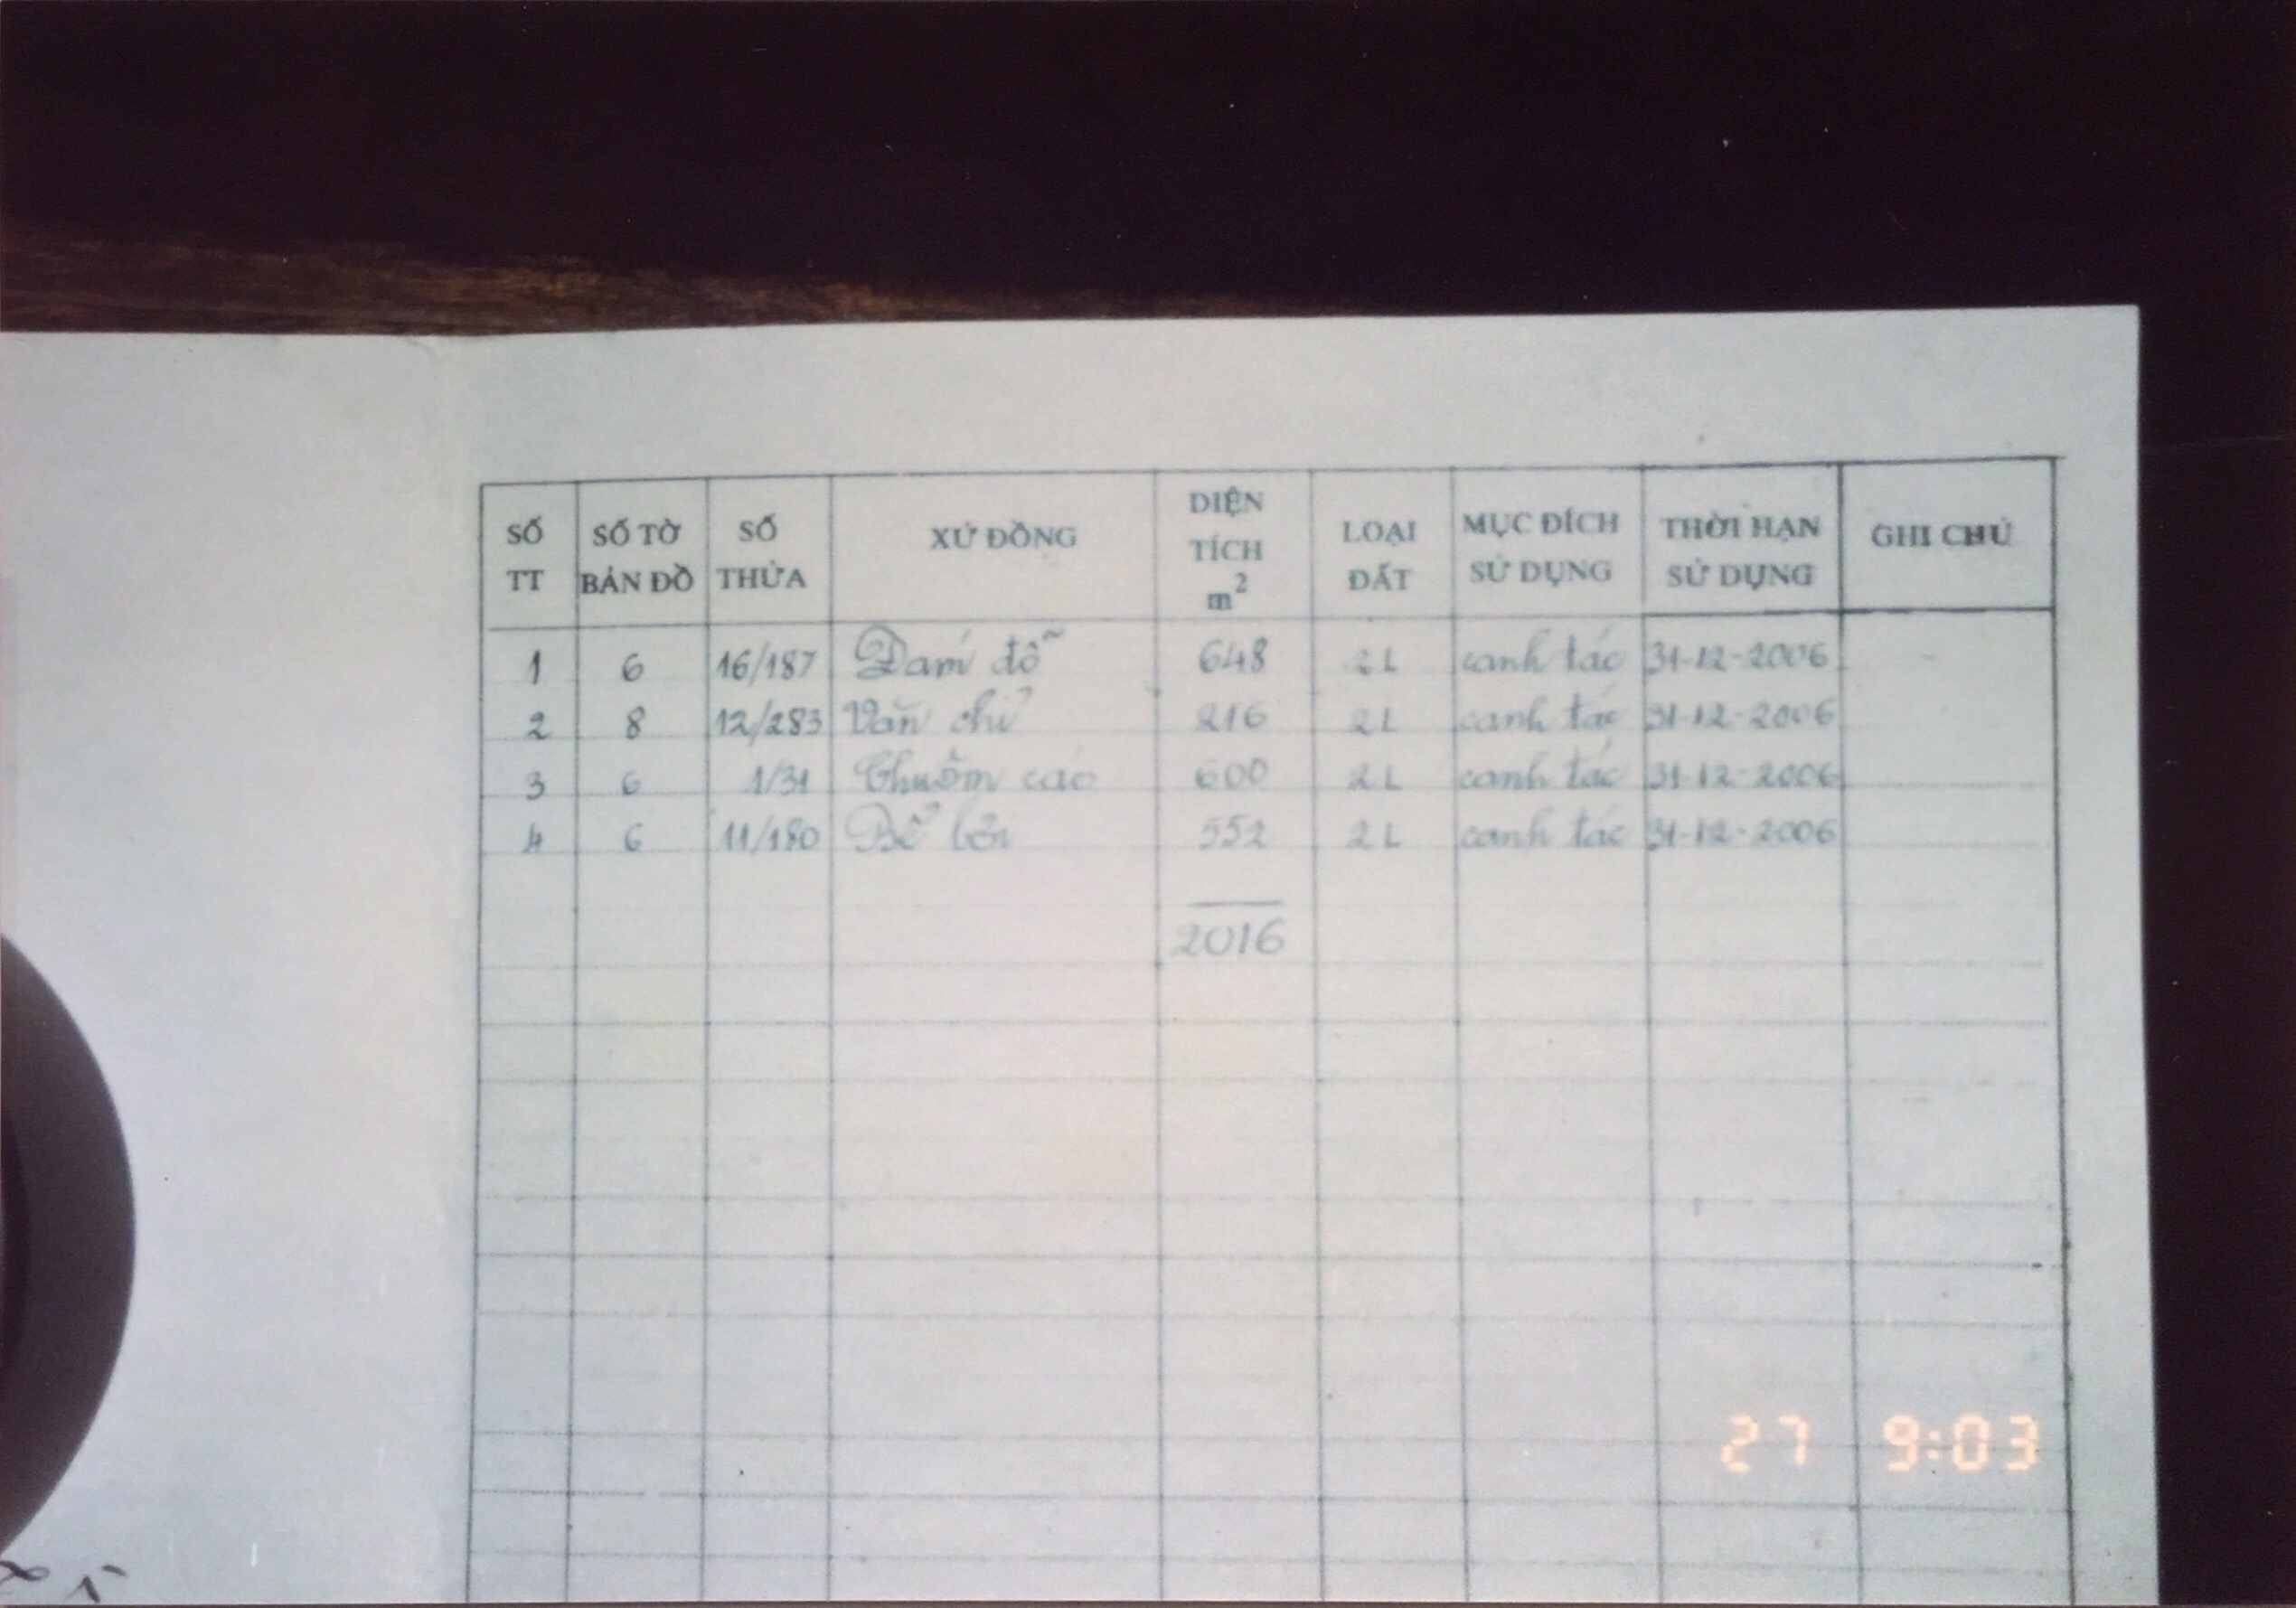 SỐ TT SỐ TỜ BẢN ĐỒ SỐ THỬA XỨ ĐỒNG DIỆN TÍCH m² LOẠI ĐẤT MỤC ĐÍCH SỬ DỤNG THỜI HẠN SỬ DỤNG GHI CHÚ
1 6 16/187 Đám đỗ 648 2L canh tác 31-12-2006
2 8 12/283 Văn chỉ 216 2L canh tác 31-12-2006
3 6 1/31 Chuôm cáo 600 2L canh tác 31-12-2006
4 6 11/180 Bể bơi 552 2L canh tác 31-12-2006
2016
27 9:03